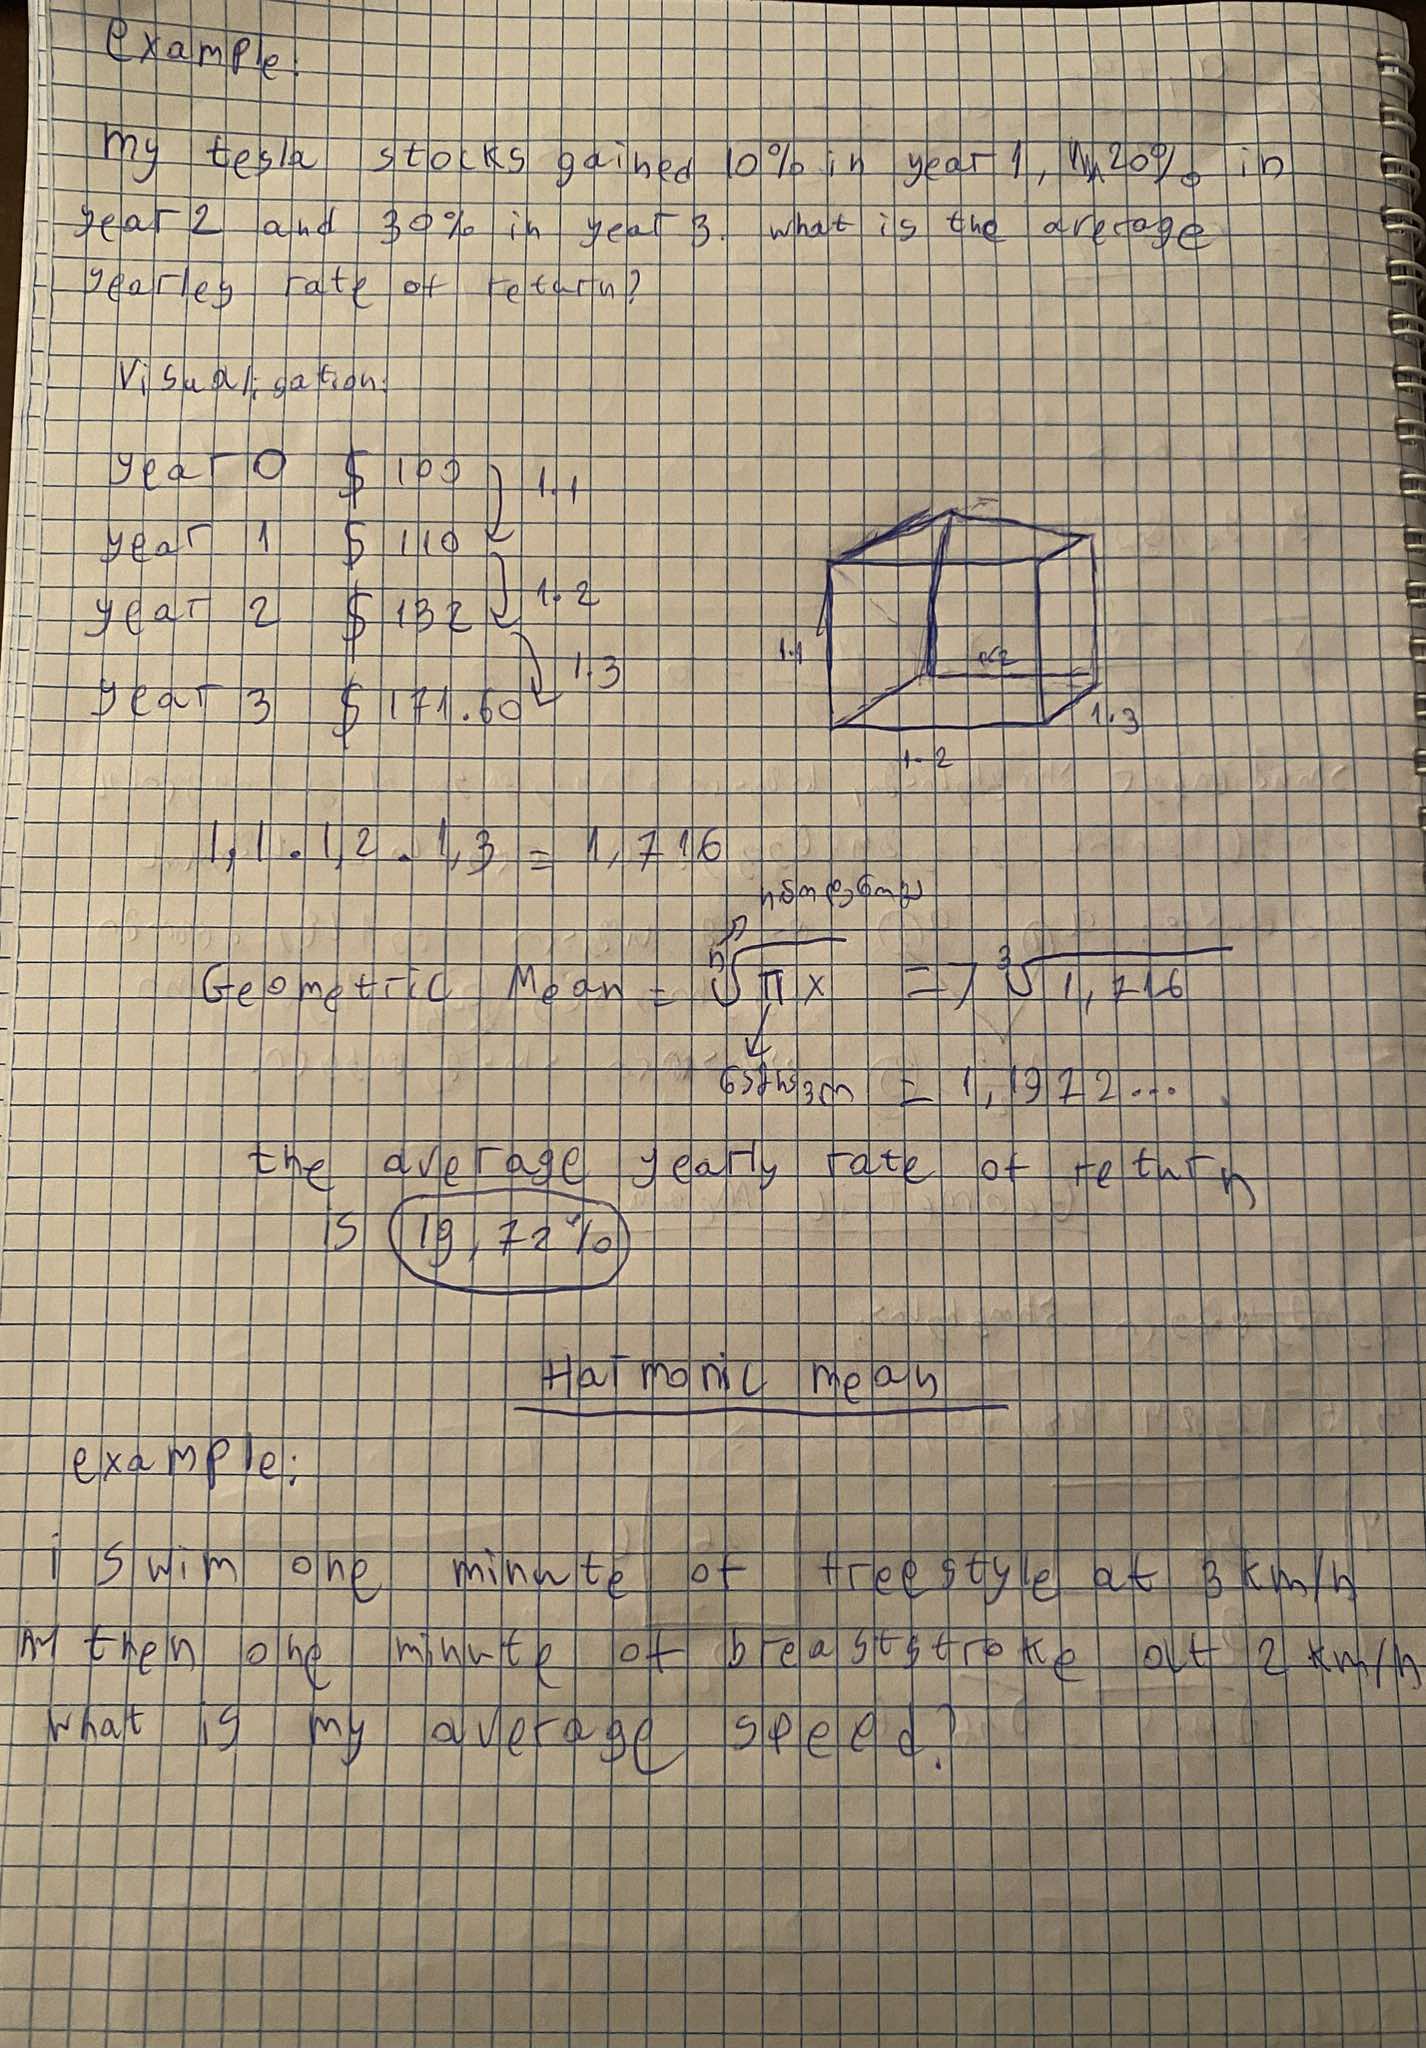 example:
my tesla stocks gained 10% in year 1, 20% in
year 2 and 30% in year 3. what is the average
yearley rate of return?
Visualisation:
year 0 $ 100
1.1
year 1 $ 110
1.2
year 2 $ 132
1.3
year 3 $ 171.60
1.1
1.3
1.2
1,1 . 1,2 . 1,3 = 1,716
Geometric Mean = n√πx => 3√1,716
= 1,1972...
the average yearly rate of return
is 19,72%
Harmonic mean
example:
i swim one minute of freestyle at 3 km/h
then one minute of breaststroke at 2 km/h
what is my average speed?